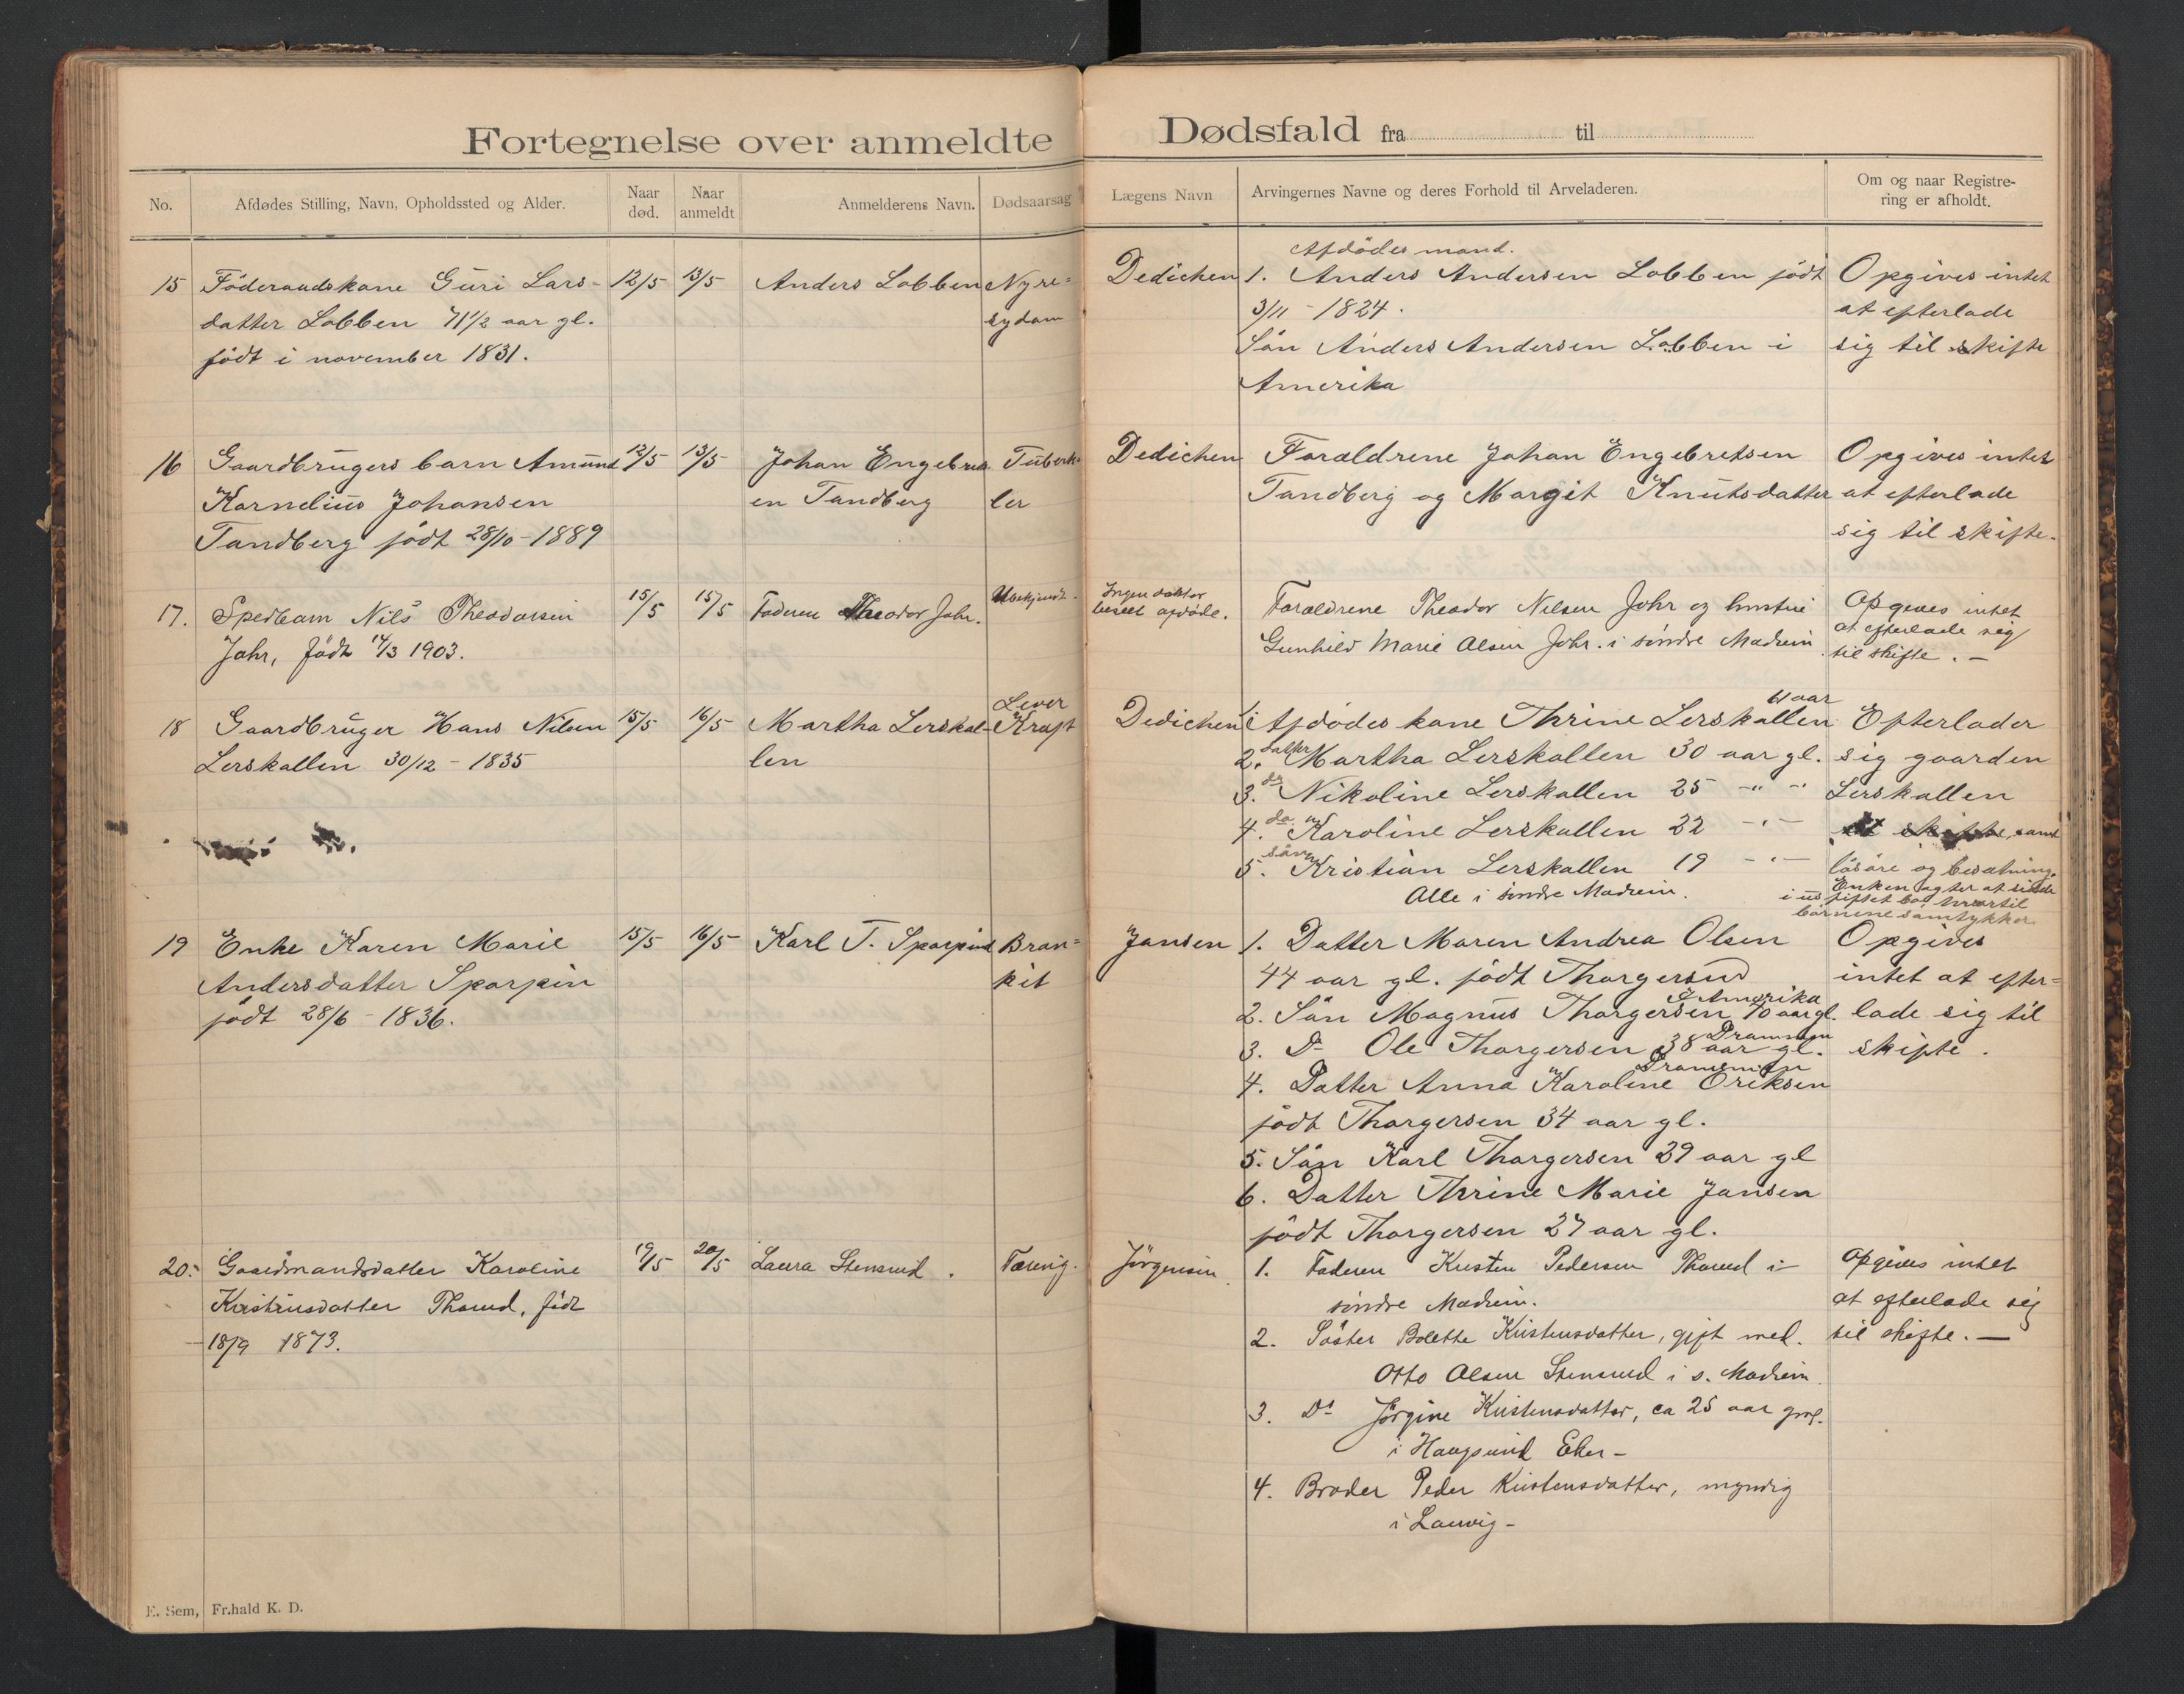 Fortegnelse over anmeldte Dødsfald fra til
No.
Afdødes Stilling, Navn, Opholdssted og Alder.
Naar død.
Naar anmeldt
Anmelderens Navn.
Dødsaarsag
Lægens Navn
Arvingernes Navne og deres Forhold til Arveladeren.
Om og naar Registre-
ring er afholdt.
15 Föderaadskone Guri Lars-
datter Lobben 71 1/2 aar gl.
födt i november 1831.
12/5
13/5
Anders Lobben
Nyre=
sydom
Dedichen
Afdödes mand.
1. Anders Andersen Lobben födt
3/11 - 1824.
Sön Anders Andersen Lobben i
Amerika
Opgives intet
at efterlade
sig til skifte
16 Gaardbrugers barn Amund
Kornelius Johansen
Tandberg födt 28/10 - 1889
12/5
13/5
Johan Engebret
en Tandberg
Tuberk-
ler
Dedichen
Foraldrene Johan Engebretsen
Tandberg og Margit Knutsdatter
Opgives intet
at efterlade
sig til skifte.
17. Spedbarn Nils Theodorsen
Johr, född 14/3 1903.
15/5
15/5
Faderen Theodor Johr.
Ubekjendt.
Ingen doktor
beseet afdöde.
Foraldrene Theodor Nilsen Johr og hustru
Gunhild Marie Olsen Johr. i söndre Modum
Opgives intet
at efterlade sig
til skifte. —
18 Gaardbruger Hans Nilsen
Lerskallen 30/12 - 1835
15/5
16/5
Martha Lerskal-
len
Lever
Kraft
Dedichen
1. Afdödes kone Thrine Lerskallen 61 aar
2. datter Martha Lerskallen 30 aar gl.
3. do Nikoline Lerskallen 25 -"- -"
4. do. Karoline Lerskallen 22 -"-
5. sön Kristian Lerskallen 19 -"-
Alle i söndre Modum.
Efterlader
sig gaarden
Lerskallen
samt
lösöre og besætning.
Enken agter at sidde
i uskiftet bo hvortil
börnene samtykker
19 Enke Karen Marie
Andersdatter Sporpin
födt 28/6 - 1836.
15/5
16/5
Karl T. Sporpind
Bron=
kit
Jansen
1. Datter Maren Andrea Olsen
44 aar gl. födt Thorgersen
I Amerika
2. Sön Magnus Thorgersen 40 aar gl.
Drammen
3. Do Ole Thorgersen 38 aar gl.
Drammen
4. Datter Anna Karoline Eriksen
födt Thorgersen 34 aar gl.
5. Sön Karl Thorgersen 29 aar gl
6. Datter Thrine Marie Jansen
födt Thorgersen 27 aar gl.
Opgives
intet at efter=
lade sig til
skifte.
20. Gaardmandsdatter Karoline
Kristensdatter Thorud, födt
18/9 1873.
19/5
20/5
Laura Stensrud.
Tæring.
Jörgensen
1. Faderen Kristen Pedersen Thorud i
söndre Modum.
2. Söster Bolette Kristensdatter, gift med.
Otto Olsen Stensrud i s. Modum.
3. Do Jörgine Kristensdatter, ca 25 aar gml.
i Haugsund Eker -
4. Broder Peder Kristensdatter, myndig
i Laurvig -
Opgives intet
at efterlade sig
til skifte. —
E. Sem, Fr.hald K. D.